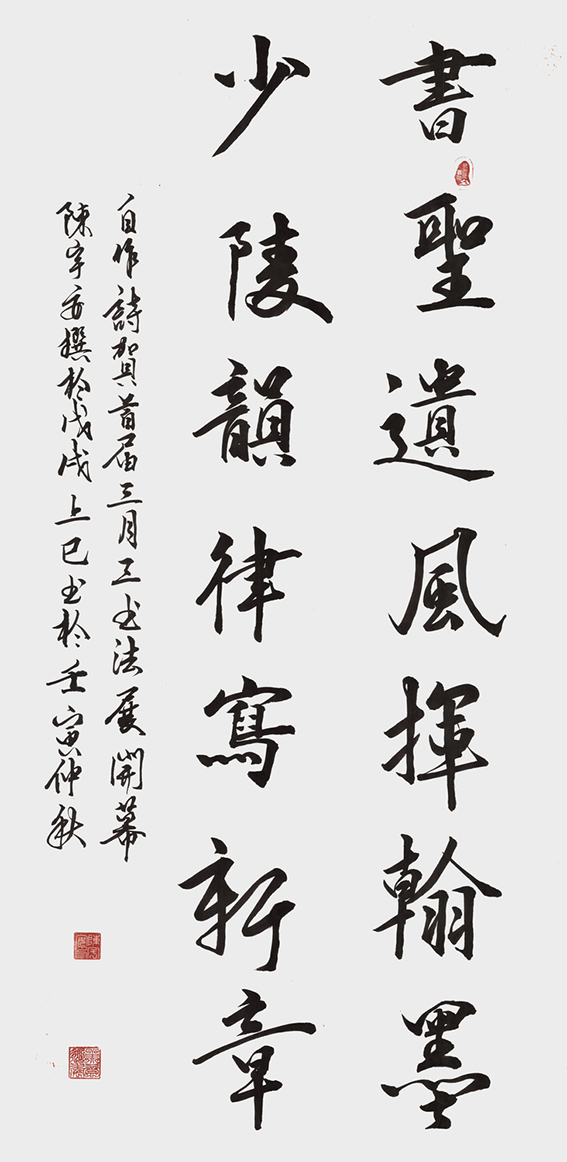 書聖遺風揮翰墨
少陵韻律寫新章
自作詩賀首届三月三书法展開幕
陳宇安撰於戊戌上巳书於壬寅仲秋